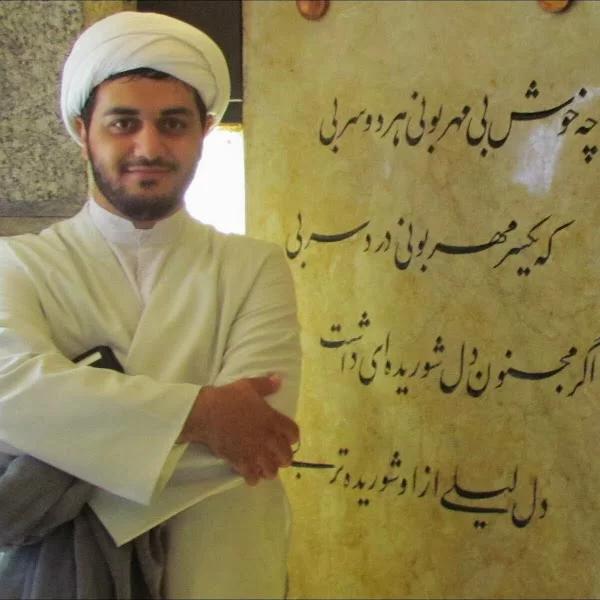 چه خوش بی مهربونی هر دو سر بی
که یکسر مهربونی درد سر بی
اگر مجنون دل شوریده‌ای داشت
دل لیلی از او شوریده تر بی